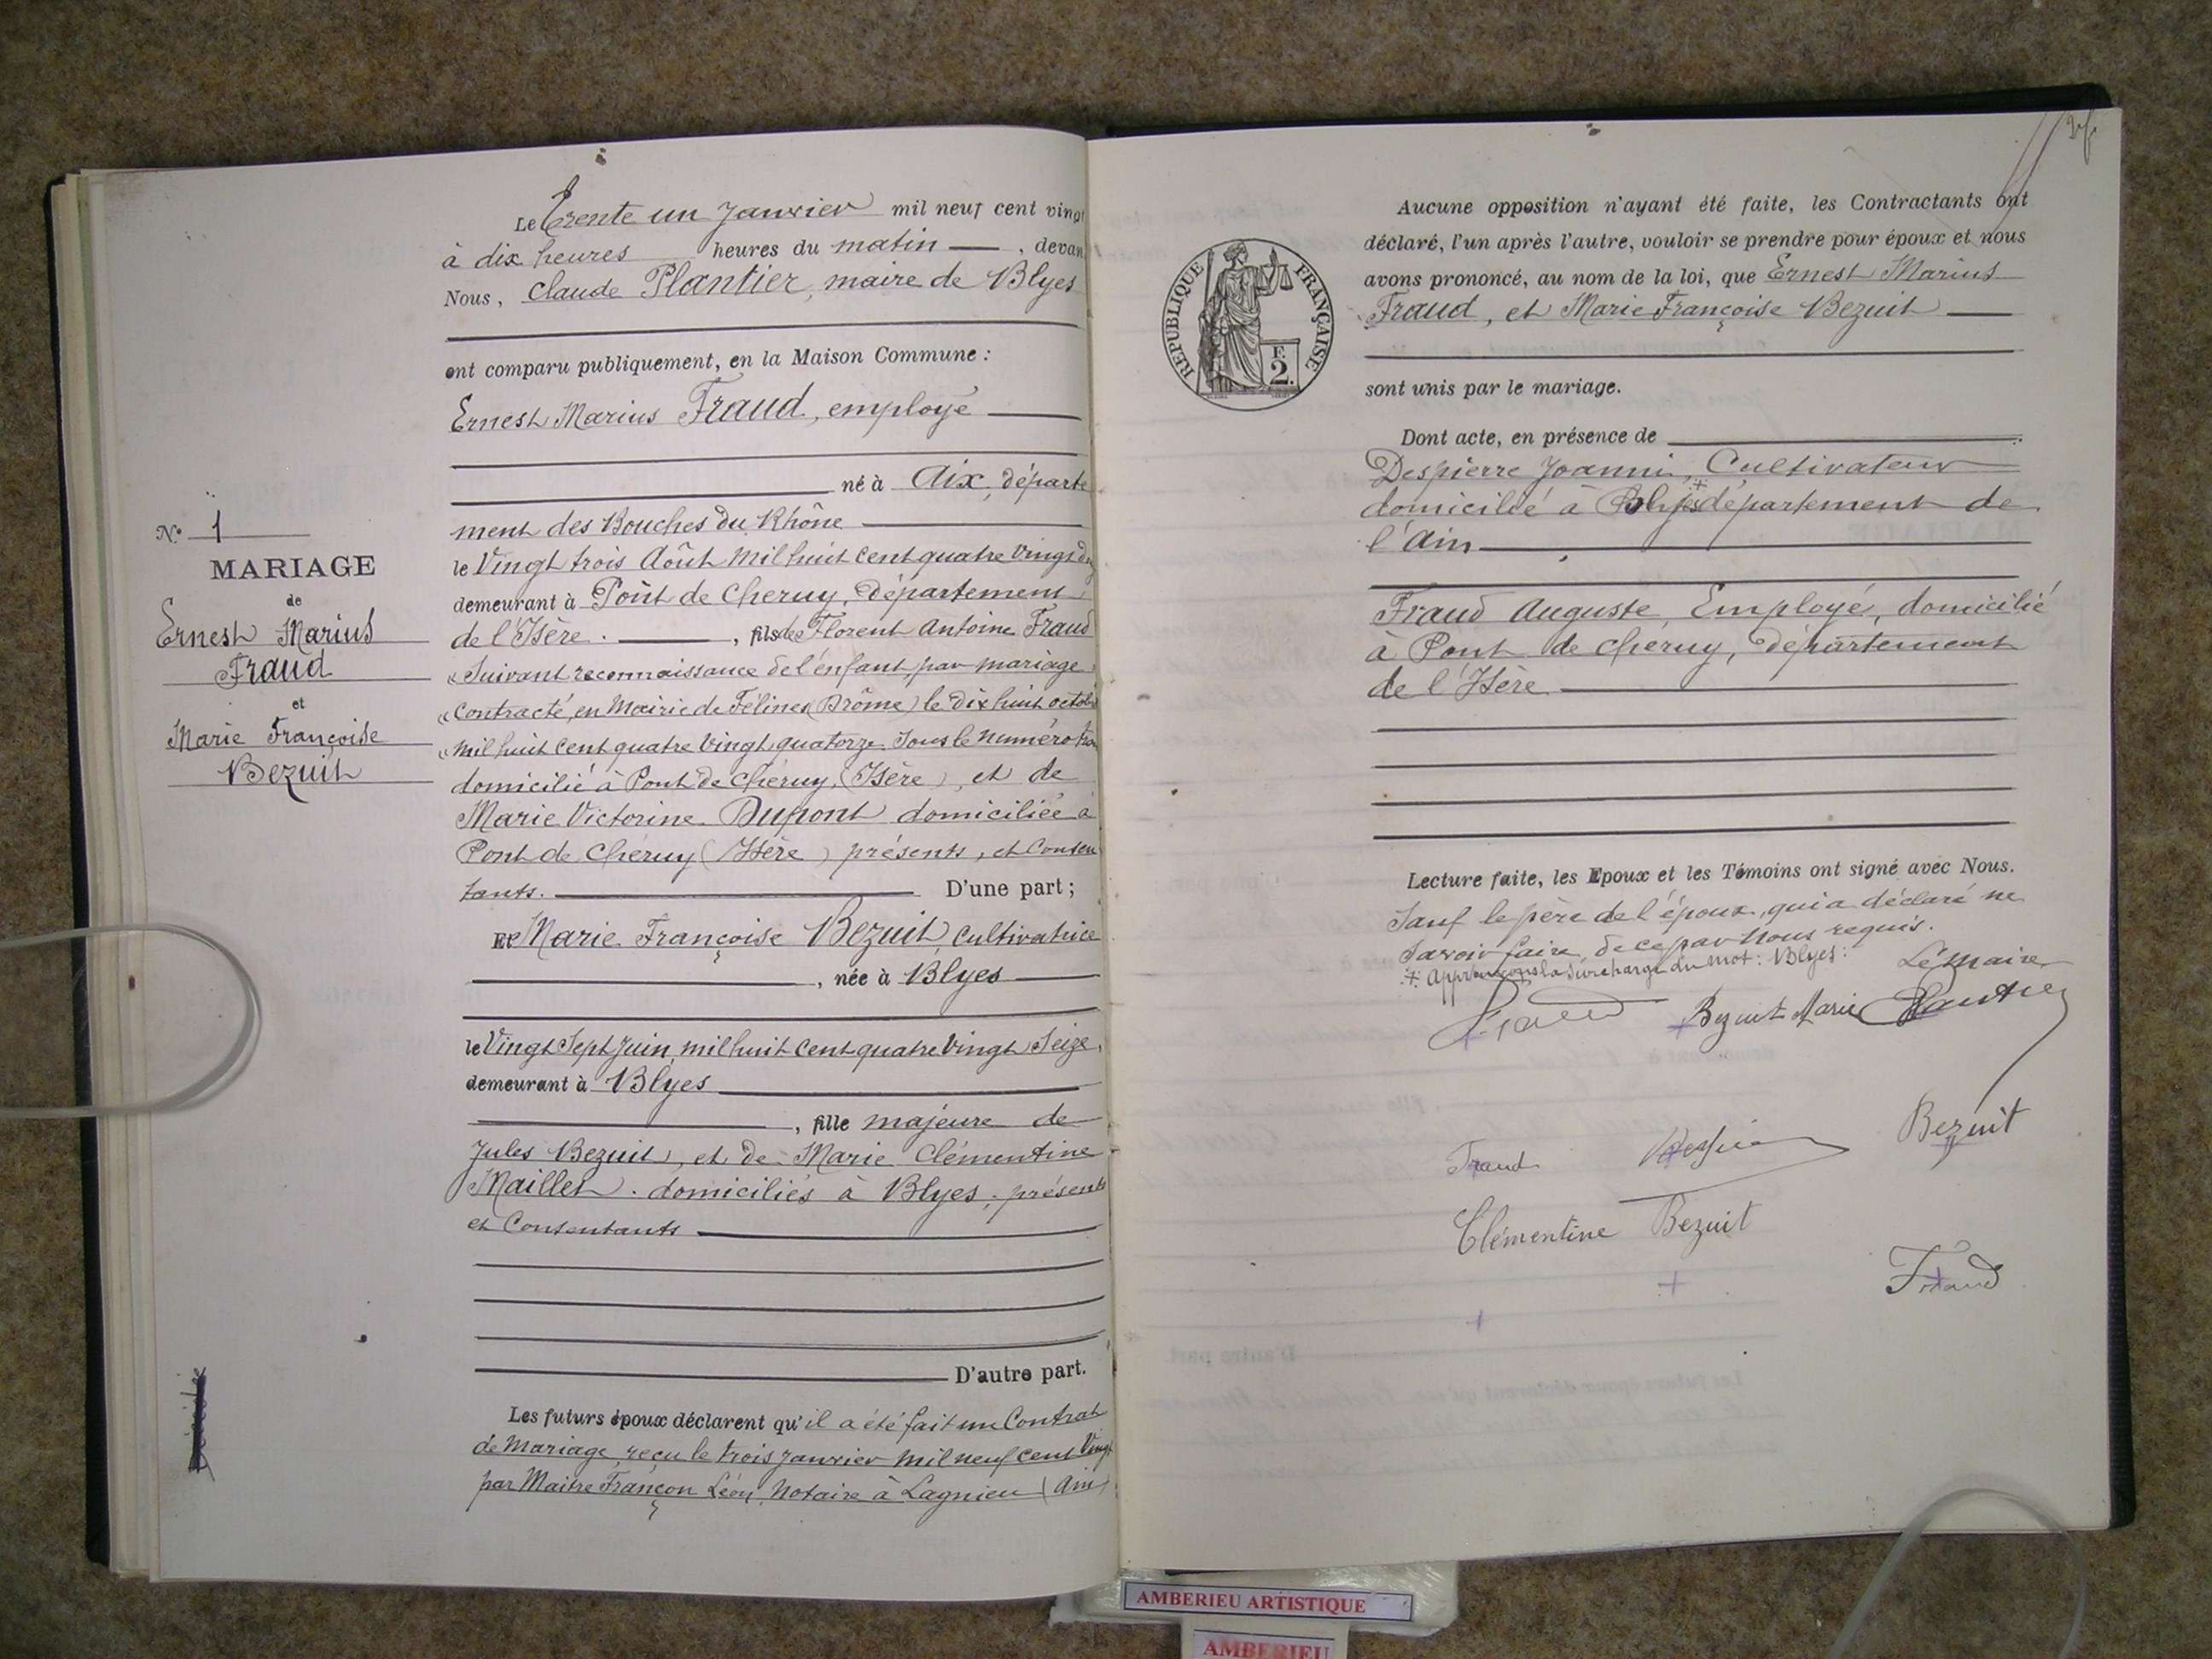 N° 1
MARIAGE
de
Ernest Marius
Fraud
et
Marie Françoise
Bezuit
Le Trente un Janvier mil neuf cent vingt
à dix heures heures du matin , devan
Nous, Claude Plantier, maire de Blyes
ont comparu publiquement, en la Maison Commune :
Ernest Marius Fraud, employé
né à Aix, départe
ment des Bouches du Rhône
le Vingt trois Août mil huit cent quatre vingt
demeurant à Pont de Cheruy, Département
de l'Isère. , fils de Florent Antoine Fraud
« Suivant reconnaissance de l'enfant, par mariage
« Contracté, en Mairie de Félines (Drôme) le dix huit octob
« mil huit cent quatre vingt quatorze Sous le numéro
domicilié à Pont de Chéruy, (Isère), et de
Marie Victorine Dupont domiciliée à
Pont de Chéruy (Isère) présents, et Consen
tants. D'une part ;
Et Marie Françoise Bezuit, Cultivatrice
, née à Blyes
le Vingt Sept Juin, mil huit cent quatre vingt Seize,
demeurant à Blyes
, fille majeure de
Jules Bezuit, et de Marie Clémentine
Maillet. domiciliés à Blyes, présents
et Consentants
D'autre part.
Les futurs époux déclarent qu'il a été fait un Contrat
de Mariage, reçu le trois Janvier mil neuf cent Vingt
par Maitre Françon Léon, Notaire à Lagnieu (Ain)
REPUBLIQUE FRANÇAISE
F.
2.
Aucune opposition n'ayant été faite, les Contractants ont
déclaré, l'un après l'autre, vouloir se prendre pour époux et nous
avons prononcé, au nom de la loi, que Ernest Marius
Fraud, et Marie Françoise Bezuit
sont unis par le mariage.
Dont acte, en présence de
Despierre Joanni, Cultivateur
domicilié à Blyes département de
l'Ain
Fraud Auguste, Employé, domicilié
à Pont de Cheruy, Département
de l'Isère
Lecture faite, les Epoux et les Témoins ont signé avec Nous.
Sauf le père de l'époux, qui a déclaré ne
Savoir faire, de ce par Nous requis.
Approuvons la Surcharge du mot : Blyes :
Le Maire
Fraud Bezuit Marie Plantier
Fraud Bezuit
Clémentine Bezuit
Fraud
AMBERIEU ARTISTIQUE
AMBERIEU